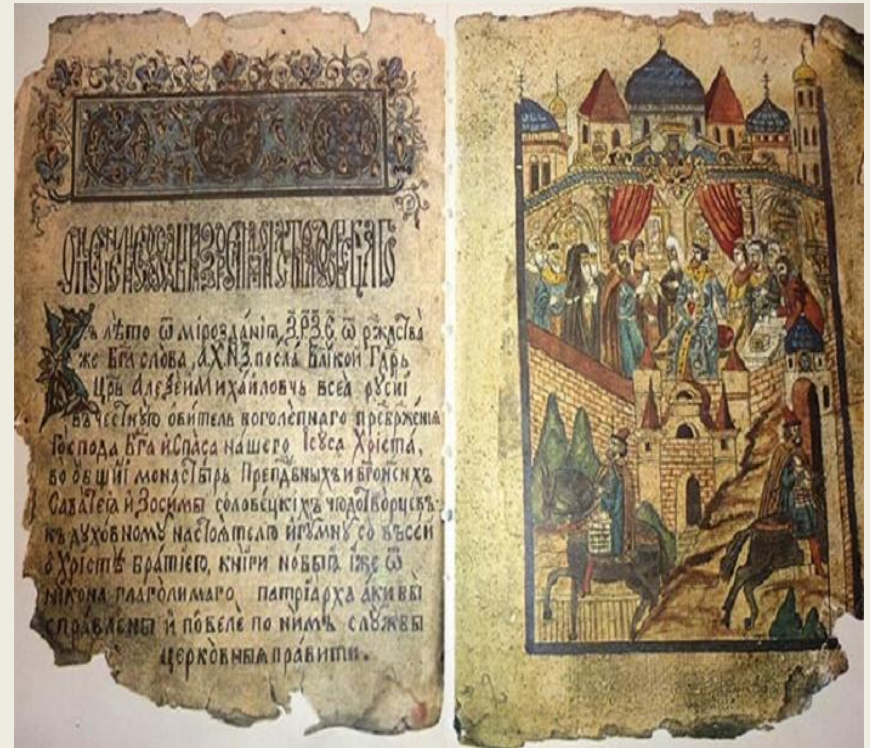 Въ лѣто ѿ мірозданіѧ, ЗРЗЄ ѿ рждства
же Бга слова, АХНЗ посла Влікой Гдрь
Црь Алеѯей Михайловчь всеа русиі
въ честную обитель боголепнаго пребрженія
Господа Бга и Спаса нашего Ісуса Хріста,
во общиі монастырь Преподбныхъ и бгоноснхъ
Саватеѧ и Зосимы соловецкіхъ чюдотворцевъ
къ духовному настоятелю игумну со всеи
о Христѣ братіею, книги новыѧ їже ѿ
никона глаголимаго патріарха аки вы
справлены и повеле по нимъ службы
церковныѧ правити.